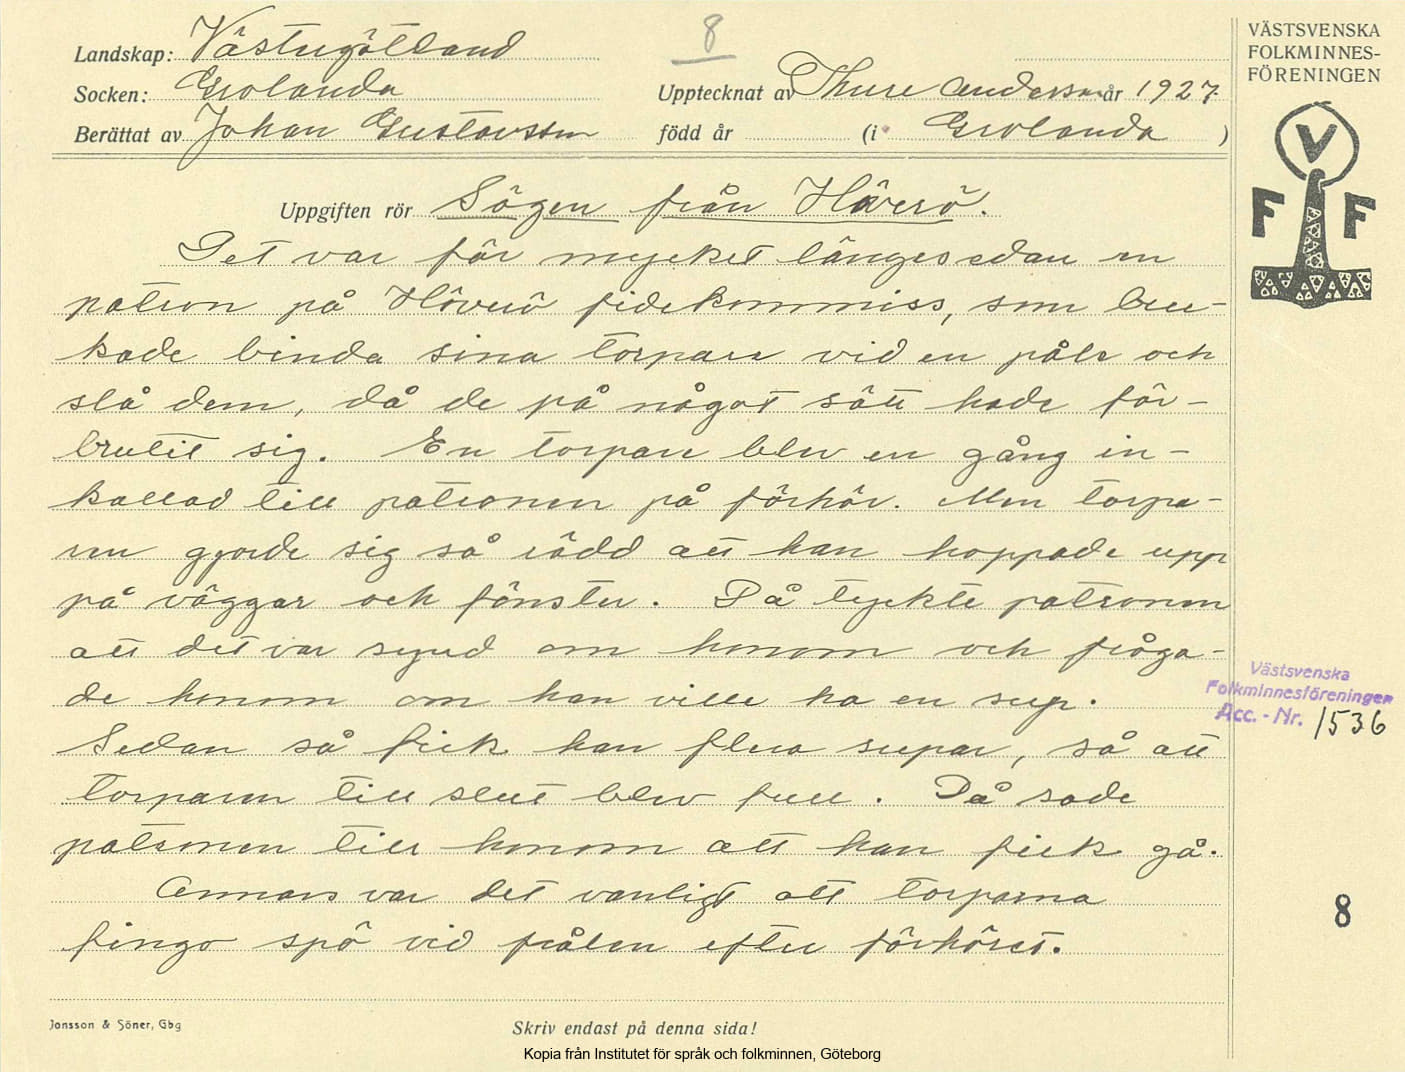 8
Landskap: Västergötland
Socken: Grolanda
Upptecknat av Thure Andersson år 1927
Berättat av Johan Gustavsson född år (i Grolanda)
VÄSTSVENSKA
FOLKMINNES-
FÖRENINGEN
V
F F
Uppgiften rör Sägen från Häverö.
Det var för mycket länge sedan en
patron på Häverö fidekommiss, som bru-
kade binda sina torpare vid en påle och
slå dem, då de på något sätt hade för-
brutit sig. En torpare blev en gång in-
kallad till patronen på förhör. Men torpa-
ren gjorde sig så rädd att han hoppade upp
på väggar och fönster. Då tyckte patronen
att det var synd om honom och fråga-
de honom om han ville ha en sup.
Sedan så fick han flera supar, så att
torparen till slut blev full. Då sade
patronen till honom att han fick gå.
Annars var det vanligt att torparna
fingo spö vid pålen efter förhöret.
Västsvenska
Folkminnesföreningen
Acc. - Nr. 1536
8
Jonsson & Söner, Gbg
Skriv endast på denna sida!
Kopia från Institutet för språk och folkminnen, Göteborg